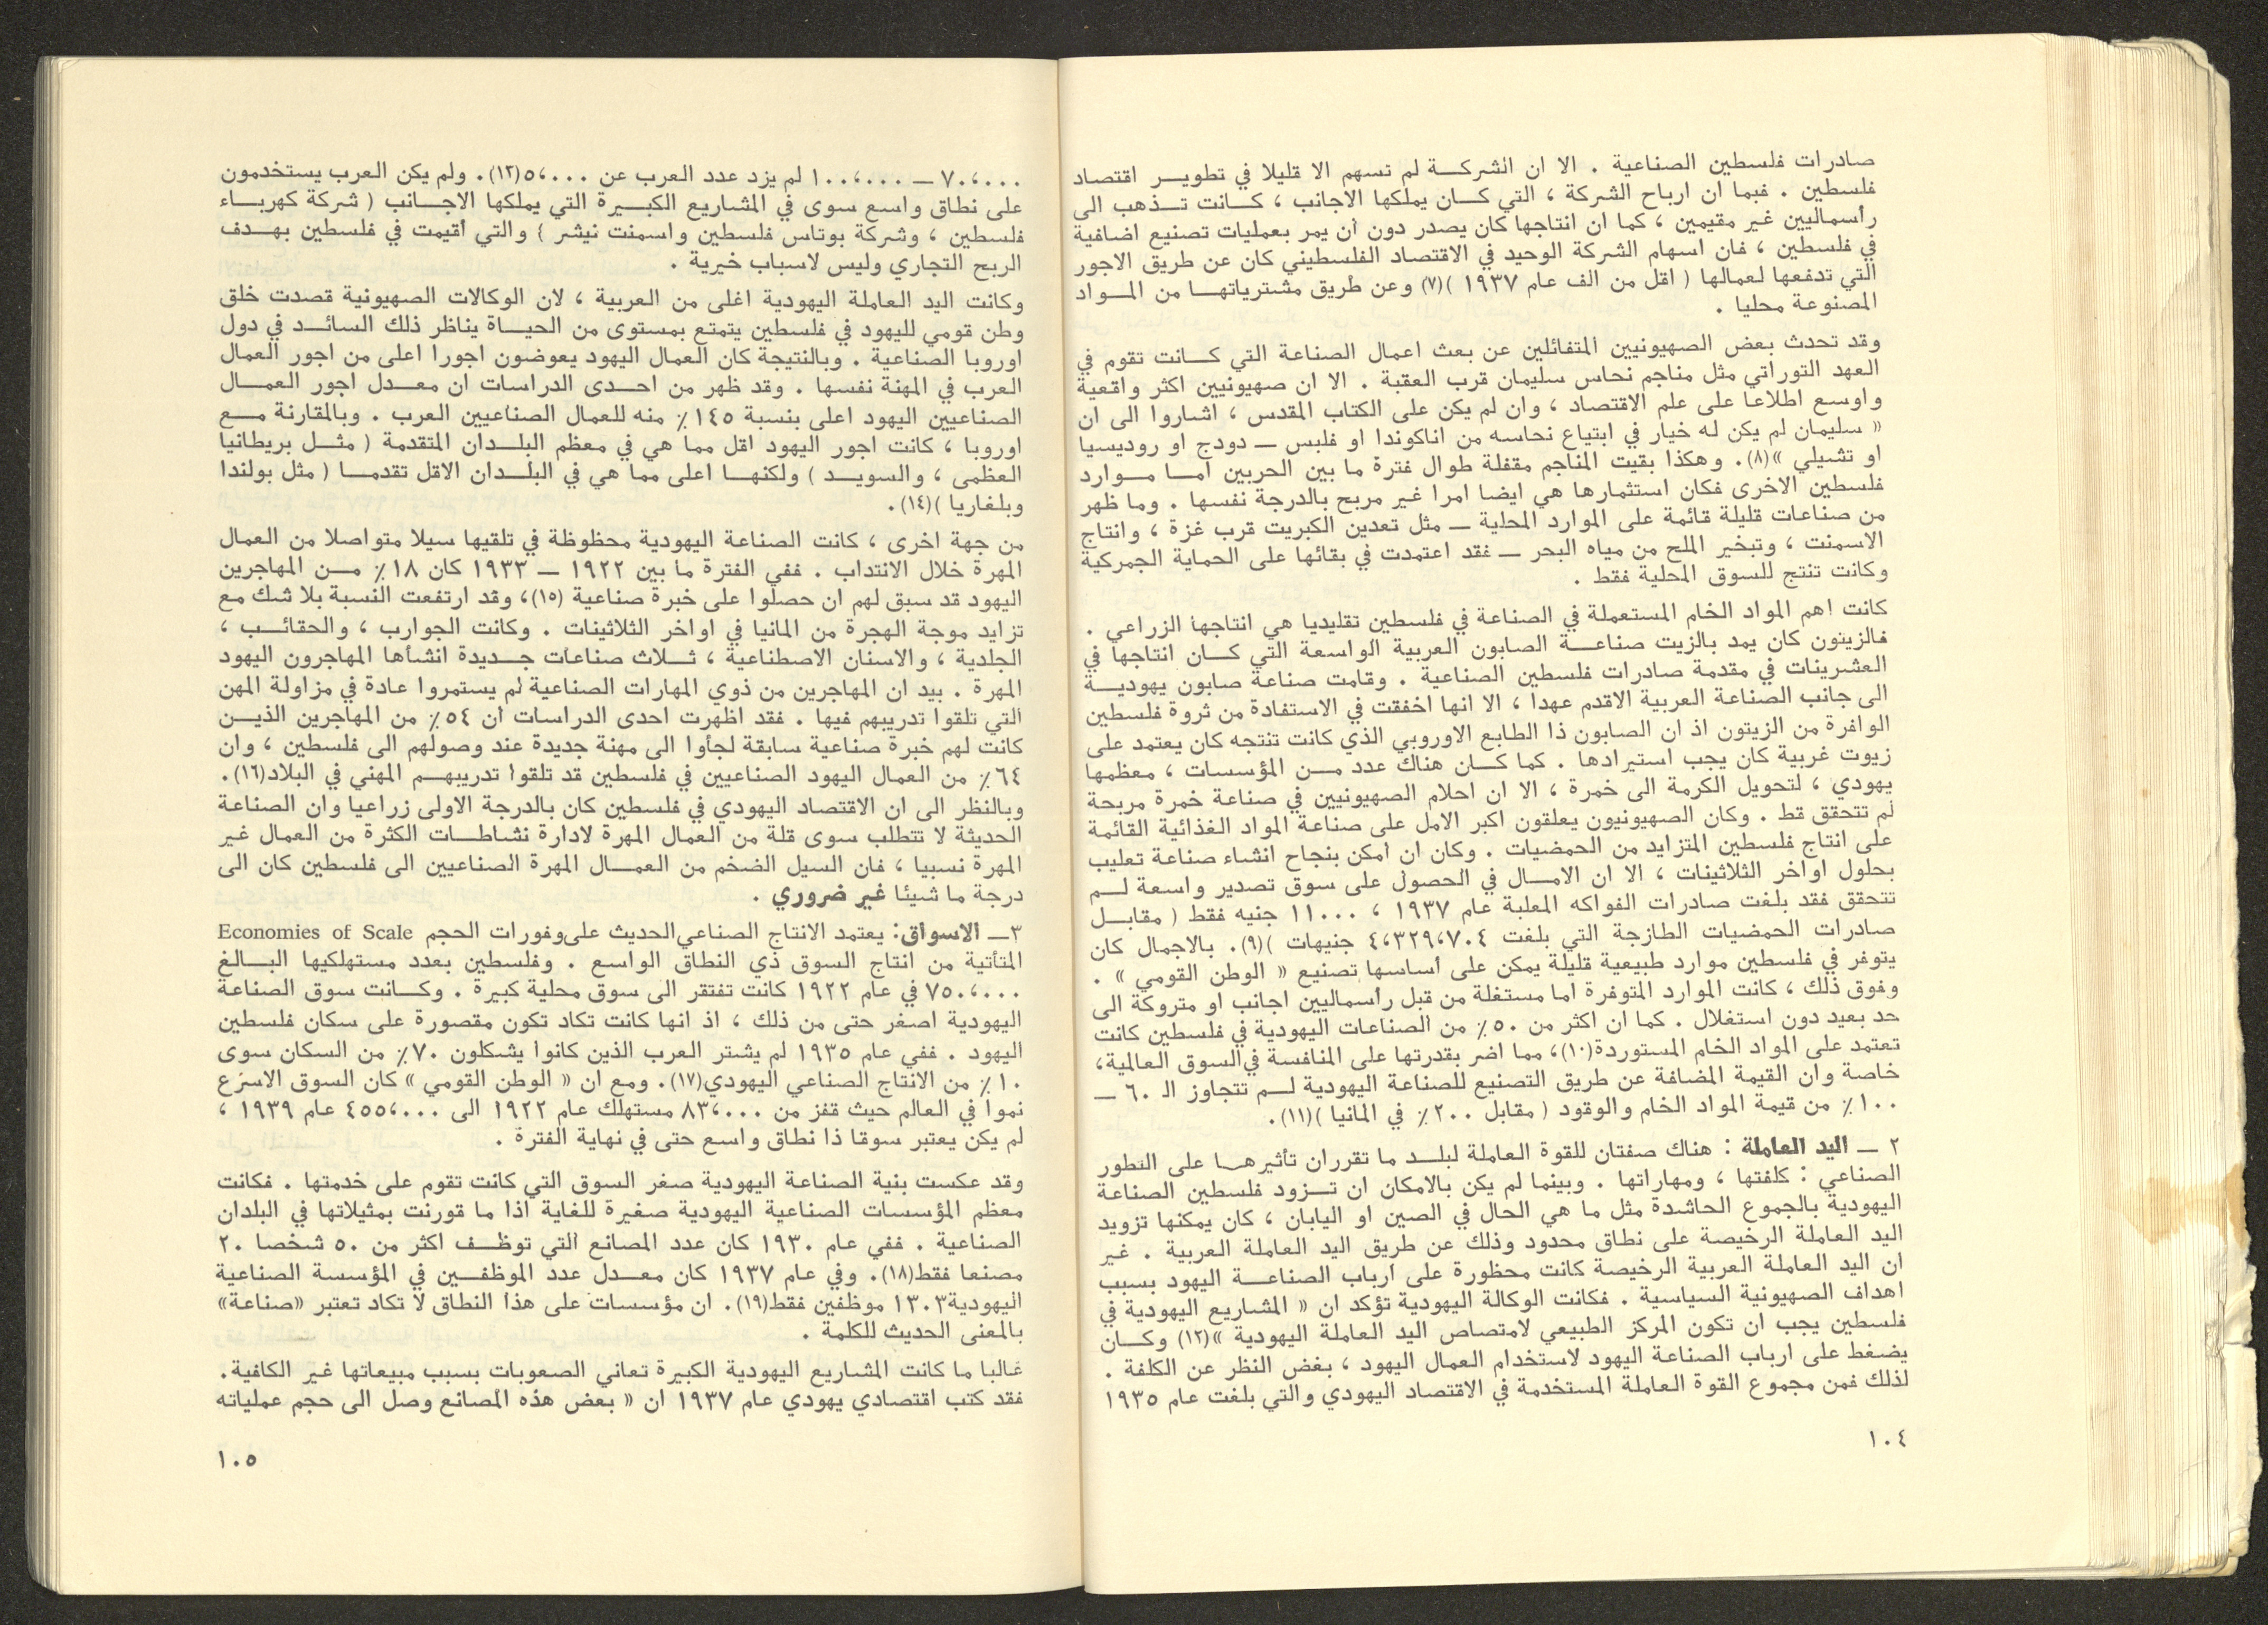 صادرات فلسطين الصناعية . الا ان الشركة لم تسهم الا قليلا في تطوير اقتصاد
فلسطين . فبما ان ارباح الشركة ، التي كان يملكها الاجانب ، كانت تذهب الى
رأسماليين غير مقيمين ، كما ان انتاجها كان يصدر دون أن يمر بعمليات تصنيع اضافية
في فلسطين ، فان اسهام الشركة الوحيد في الاقتصاد الفلسطيني كان عن طريق الاجور
التي تدفعها لعمالها ( اقل من الف عام ١٩٣٧ )(٧) وعن طريق مشترياتها من المواد
المصنوعة محليا .
وقد تحدث بعض الصهيونيين المتفائلين عن بعث اعمال الصناعة التي كانت تقوم في
العهد التوراتي مثل مناجم نحاس سليمان قرب العقبة . الا ان صهيونيين اكثر واقعية
واوسع اطلاعا على علم الاقتصاد ، وان لم يكن على الكتاب المقدس ، اشاروا الى ان
« سليمان لم يكن له خيار في ابتياع نحاسه من اناكوندا او فلبس — دودج او روديسيا
او تشيلي »(٨). وهكذا بقيت المناجم مقفلة طوال فترة ما بين الحربين اما موارد
فلسطين الاخرى فكان استثمارها هي ايضا امرا غير مربح بالدرجة نفسها . وما ظهر
من صناعات قليلة قائمة على الموارد المحلية — مثل تعدين الكبريت قرب غزة ، وانتاج
الاسمنت ، وتبخير الملح من مياه البحر — فقد اعتمدت في بقائها على الحماية الجمركية
وكانت تنتج للسوق المحلية فقط .
كانت اهم المواد الخام المستعملة في الصناعة في فلسطين تقليديا هي انتاجها الزراعي .
فالزيتون كان يمد بالزيت صناعة الصابون العربية الواسعة التي كان انتاجها في
العشرينات في مقدمة صادرات فلسطين الصناعية . وقامت صناعة صابون يهودية
الى جانب الصناعة العربية الاقدم عهدا ، الا انها اخفقت في الاستفادة من ثروة فلسطين
الوافرة من الزيتون اذ ان الصابون ذا الطابع الاوروبي الذي كانت تنتجه كان يعتمد على
زيوت غربية كان يجب استيرادها . كما كان هناك عدد من المؤسسات ، معظمها
يهودي ، لتحويل الكرمة الى خمرة ، الا ان احلام الصهيونيين في صناعة خمرة مربحة
لم تتحقق قط . وكان الصهيونيون يعلقون اكبر الامل على صناعة المواد الغذائية القائمة
على انتاج فلسطين المتزايد من الحمضيات . وكان ان أمكن بنجاح انشاء صناعة تعليب
بحلول اواخر الثلاثينات ، الا ان الامال في الحصول على سوق تصدير واسعة لم
تتحقق فقد بلغت صادرات الفواكه المعلبة عام ١٩٣٧ ، ١١٠٠٠ جنيه فقط ( مقابل
صادرات الحمضيات الطازجة التي بلغت ٤،٣٢٩،٧٠٤ جنيهات )(٩). بالاجمال كان
يتوفر في فلسطين موارد طبيعية قليلة يمكن على أساسها تصنيع « الوطن القومي » .
وفوق ذلك ، كانت الموارد المتوفرة اما مستغلة من قبل رأسماليين اجانب او متروكة الى
حد بعيد دون استغلال . كما ان اكثر من ٥٠٪ من الصناعات اليهودية في فلسطين كانت
تعتمد على المواد الخام المستوردة(١٠)، مما اضر بقدرتها على المنافسة في السوق العالمية،
خاصة وان القيمة المضافة عن طريق التصنيع للصناعة اليهودية لم تتجاوز الـ ٦٠ —
١٠٠٪ من قيمة المواد الخام والوقود ( مقابل ٢٠٠٪ في المانيا )(١١).
٢ — اليد العاملة : هناك صفتان للقوة العاملة لبلد ما تقرران تأثيرها على التطور
الصناعي : كلفتها ، ومهاراتها . وبينما لم يكن بالامكان ان تزود فلسطين الصناعة
اليهودية بالجموع الحاشدة مثل ما هي الحال في الصين او اليابان ، كان يمكنها تزويد
اليد العاملة الرخيصة على نطاق محدود وذلك عن طريق اليد العاملة العربية . غير
ان اليد العاملة العربية الرخيصة كانت محظورة على أرباب الصناعة اليهود بسبب
اهداف الصهيونية السياسية . فكانت الوكالة اليهودية تؤكد ان « المشاريع اليهودية في
فلسطين يجب ان تكون المركز الطبيعي لامتصاص اليد العاملة اليهودية »(١٢) وكان
يضغط على ارباب الصناعة اليهود لاستخدام العمال اليهود ، بغض النظر عن الكلفة .
لذلك فمن مجموع القوة العاملة المستخدمة في الاقتصاد اليهودي والتي بلغت عام ١٩٣٥
١٠٤
٧٠،٠٠٠ — ١٠٠،٠٠٠ لم يزد عدد العرب عن ٥،٠٠٠(١٣). ولم يكن العرب يستخدمون
على نطاق واسع سوى في المشاريع الكبيرة التي يملكها الاجانب ( شركة كهرباء
فلسطين ، وشركة بوتاس فلسطين واسمنت نيشر ) والتي أقيمت في فلسطين بهدف
الربح التجاري وليس لاسباب خيرية .
وكانت اليد العاملة اليهودية اغلى من العربية ، لان الوكالات الصهيونية قصدت خلق
وطن قومي لليهود في فلسطين يتمتع بمستوى من الحياة يناظر ذلك السائد في دول
اوروبا الصناعية . وبالنتيجة كان العمال اليهود يعوضون اجورا اعلى من اجور العمال
العرب في المهنة نفسها . وقد ظهر من احدى الدراسات ان معدل اجور العمال
الصناعيين اليهود اعلى بنسبة ١٤٥٪ منه للعمال الصناعيين العرب . وبالمقارنة مع
اوروبا ، كانت اجور اليهود اقل مما هي في معظم البلدان المتقدمة ( مثل بريطانيا
العظمى ، والسويد ) ولكنها اعلى مما هي في البلدان الاقل تقدما ( مثل بولندا
وبلغاريا )(١٤).
من جهة اخرى ، كانت الصناعة اليهودية محظوظة في تلقيها سيلا متواصلا من العمال
المهرة خلال الانتداب . ففي الفترة ما بين ١٩٢٢ — ١٩٣٣ كان ١٨٪ من المهاجرين
اليهود قد سبق لهم ان حصلوا على خبرة صناعية (١٥)، وقد ارتفعت النسبة بلا شك مع
تزايد موجة الهجرة من المانيا في اواخر الثلاثينات . وكانت الجوارب ، والحقائب ،
الجلدية ، والاسنان الاصطناعية ، ثلاث صناعات جديدة انشأها المهاجرون اليهود
المهرة . بيد ان المهاجرين من ذوي المهارات الصناعية لم يستمروا عادة في مزاولة المهن
التي تلقوا تدريبهم فيها . فقد اظهرت احدى الدراسات ان ٥٤٪ من المهاجرين الذين
كانت لهم خبرة صناعية سابقة لجأوا الى مهنة جديدة عند وصولهم الى فلسطين ، وان
٦٤٪ من العمال اليهود الصناعيين في فلسطين قد تلقوا تدريبهم المهني في البلاد(١٦).
وبالنظر الى ان الاقتصاد اليهودي في فلسطين كان بالدرجة الاولى زراعيا وان الصناعة
الحديثة لا تتطلب سوى قلة من العمال المهرة لادارة نشاطات الكثرة من العمال غير
المهرة نسبيا ، فان السيل الضخم من العمال المهرة الصناعيين الى فلسطين كان الى
درجة ما شيئا غير ضروري .
٣ — الاسواق: يعتمد الانتاج الصناعي الحديث على وفورات الحجم Economies of Scale
المتأتية من انتاج السوق ذي النطاق الواسع . وفلسطين بعدد مستهلكيها البالغ
٧٥٠،٠٠٠ في عام ١٩٢٢ كانت تفتقر الى سوق محلية كبيرة . وكانت سوق الصناعة
اليهودية اصغر حتى من ذلك ، اذ انها كانت تكاد تكون مقصورة على سكان فلسطين
اليهود . ففي عام ١٩٣٥ لم يشتر العرب الذين كانوا يشكلون ٧٠٪ من السكان سوى
١٠٪ من الانتاج الصناعي اليهودي(١٧). ومع ان « الوطن القومي » كان السوق الاسرع
نموا في العالم حيث قفز من ٨٣،٠٠٠ مستهلك عام ١٩٢٢ الى ٤٥٥،٠٠٠ عام ١٩٣٩ ،
لم يكن يعتبر سوقا ذا نطاق واسع حتى في نهاية الفترة .
وقد عكست بنية الصناعة اليهودية صغر السوق التي كانت تقوم على خدمتها . فكانت
معظم المؤسسات الصناعية اليهودية صغيرة للغاية اذا ما قورنت بمثيلاتها في البلدان
الصناعية . ففي عام ١٩٣٠ كان عدد المصانع التي توظف اكثر من ٥٠ شخصا ٢٠
مصنعا فقط(١٨). وفي عام ١٩٣٧ كان معدل عدد الموظفين في المؤسسة الصناعية
اليهودية ١٣٠٣ موظفين فقط(١٩). ان مؤسسات على هذا النطاق لا تكاد تعتبر «صناعة»
بالمعنى الحديث للكلمة .
غالبا ما كانت المشاريع اليهودية الكبيرة تعاني الصعوبات بسبب مبيعاتها غير الكافية.
فقد كتب اقتصادي يهودي عام ١٩٣٧ ان « بعض هذه المصانع وصل الى حجم عملياته
١٠٥